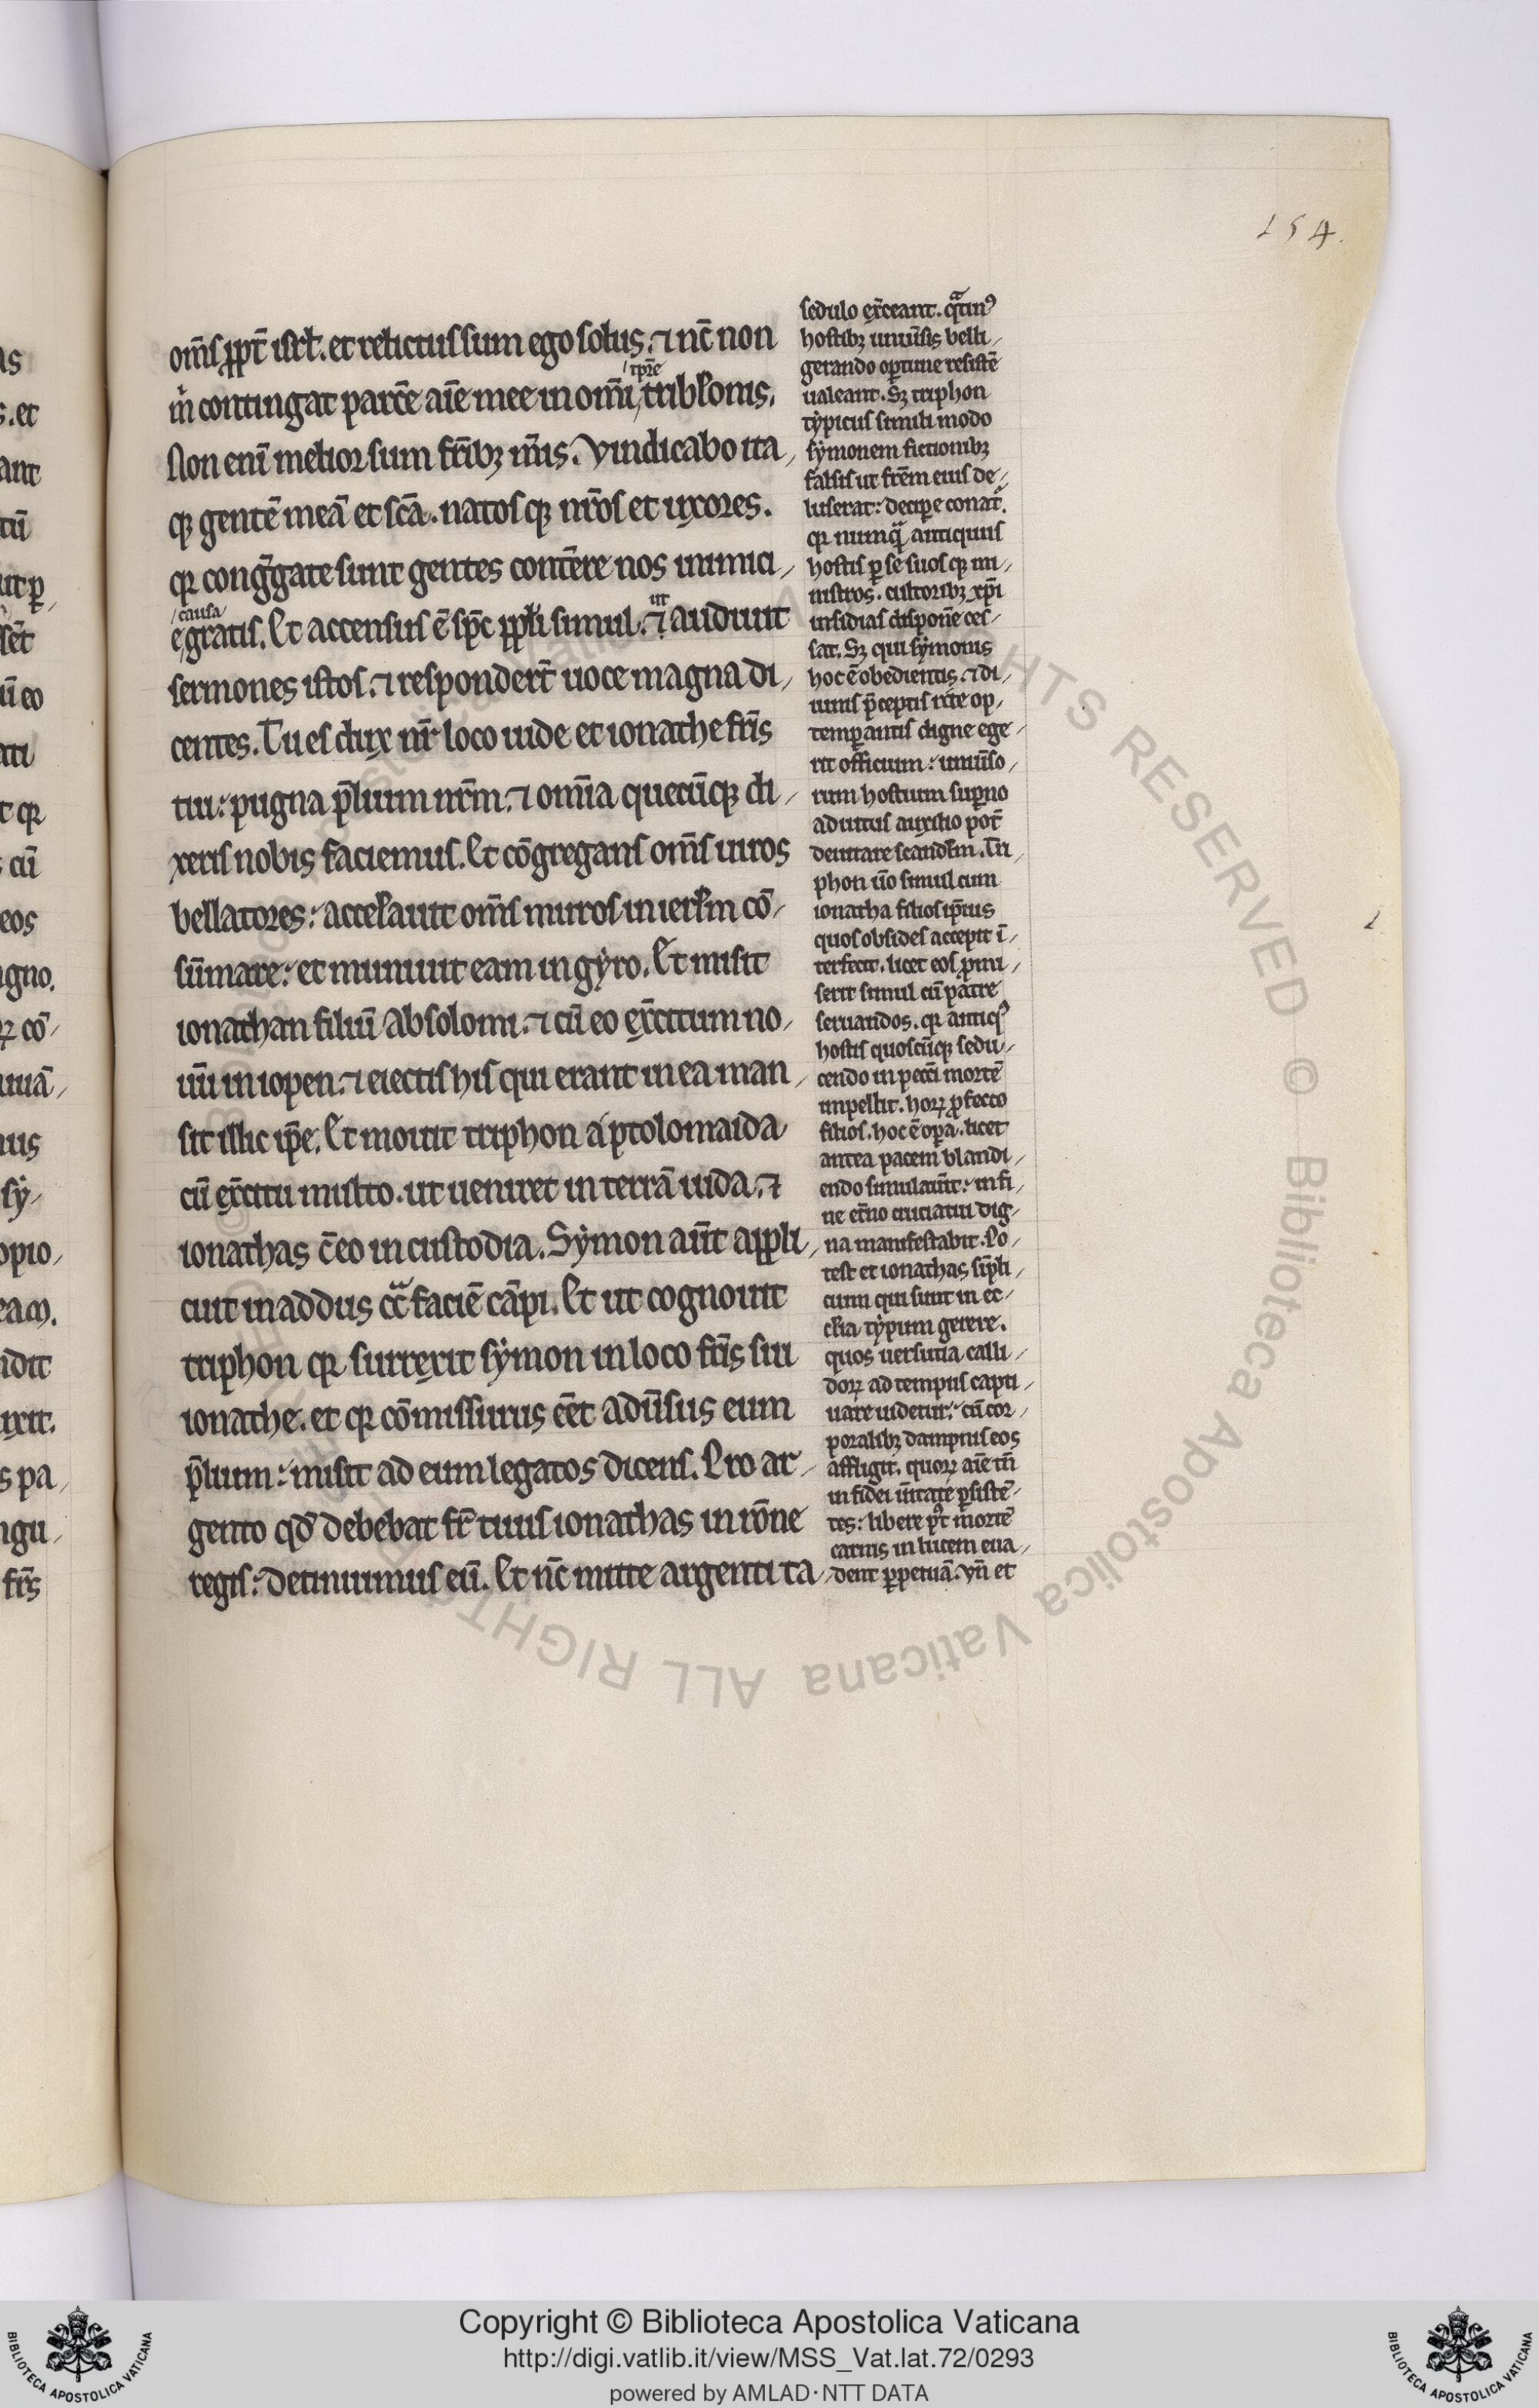 154.
om̄s ꝓpt̄ isrl̄. et relictus sum ego solus. ⁊ nc̄ non
tp̄re
m̉ contingat parcēre aīe mee in om̄i tribl̄onis.
Non enī melior sum fr̄ibꝫ m̄is. Vindicabo ita
qꝫ gentē meā et sc̄a. natos qꝫ nr̄os et uxores.
qꝛ congᷓgate sunt gentes conterēre nos inimici
causa
ē gratis. Et accensus ē sp̄c ppl̄i simul. ut ⁊ audiuit
sermones istos. ⁊ respondert̄ uoce magna di
centes. Tu es dux nr̄ loco iude et ionathe fr̄is
tui: pugna p̄lium nr̄m. ⁊ om̄ia quecūqꝫ di
xeris nobis faciemus. Et cōgregans om̄s uiros
bellatores: accel̄auit om̄s muros in ierl̄m cō
sūmare: et muniuit eam in gẏro. Et misit
ionathan filiū absolomi. ⁊ cū eo ex̄citum no
uū in iopen. ⁊ eiectis his qui erant in ea man
sit illic ip̄e. Et mouit triphon a ptolomaida
cū ex̄citu multo. ut ueniret in terrā iuda. ⁊
ionathas c̄ eo in custodia. Sẏmon aūt appli
cuit in addus cͨa faciē cāpi. Et ut cognouit
triphon qꝛ surrexit sẏmon in loco fr̄is sui
ionathe. et qꝛ cōmissurus eēt adūsus eum
p̄lium: misit ad eum legatos dicens. Pro ar
gento qd̄ debebat fr̄ tuus ionathas in rōne
regis: detinuimus eū. Et nc̄ mitte argenti ta
sedulo ex̄ceant. qͣtinꝰ
hostibꝫ uniūsis belli
gerando oportune resistē
ualeant. Sꝫ triphon
tẏpicus simili modo
sẏmonem fictionibꝫ
falsis ut fr̄em eius de
luserat: decipe conat̄.
qꝛ nunqͣ antiquus
hostis ꝑ se suos qꝫ mi
nistros. cultoribꝫ xp̄i
insidias disponēre ces
sat. Sꝫ qui sẏmonis
hoc ē obedientis. ⁊ di
uinis p̄ceptis rite op
temꝑantis digne ege
rit officium: uniūso
rum hostium suꝑno
adiutus auxilio pot̄
deuitare scandl̄m. Tri
phon ūo simul cum
ionatha filios ip̄ius
quos obsides accepit ī
terfecit. licet eos ꝓmi
serit simul cū patre
seruandos. qꝛ antiqꝰ
hostis quoscūqꝫ sedu
cendo in peccī mortē
impellit. hoꝝ ꝓfecto
filios. hoc ē oꝑa. licet
antea pacem blandi
endo simulauīt: in fi
ne et̄no cruciatui dig
na manifestabit. Po
test et ionathas simpli
cium qui sunt in ec
cl̄ia tẏpum gerere.
quos uersutia calli
doꝝ ad tempus capti
uare uidetur: cū cor
poralibꝫ dampnis eos
affligit. quoꝝ aīe tn̄
in fidei ūitate ꝑsistē
tes: libere pꝰt mortē
carnis in lucem eua
dent ꝑpetuā. Vn̄ et
as
s. et
ant
tū
ut ꝑ
sēt
ū eo
ati
t qꝛ
s cū
eos
igno.
ꝝ cō
uiuā
ius
sẏ
opio
eam.
idit
uxit.
s pa
ngu
fr̄s
ALL RIGHTS RESERVED © Biblioteca Apostolica Vaticana
Copyright © Biblioteca Apostolica Vaticana
http://digi.vatlib.it/view/MSS_Vat.lat.72/0293
powered by AMLAD·NTT DATA
BIBLIOTECA APOSTOLICA VATICANA
BIBLIOTECA APOSTOLICA VATICANA